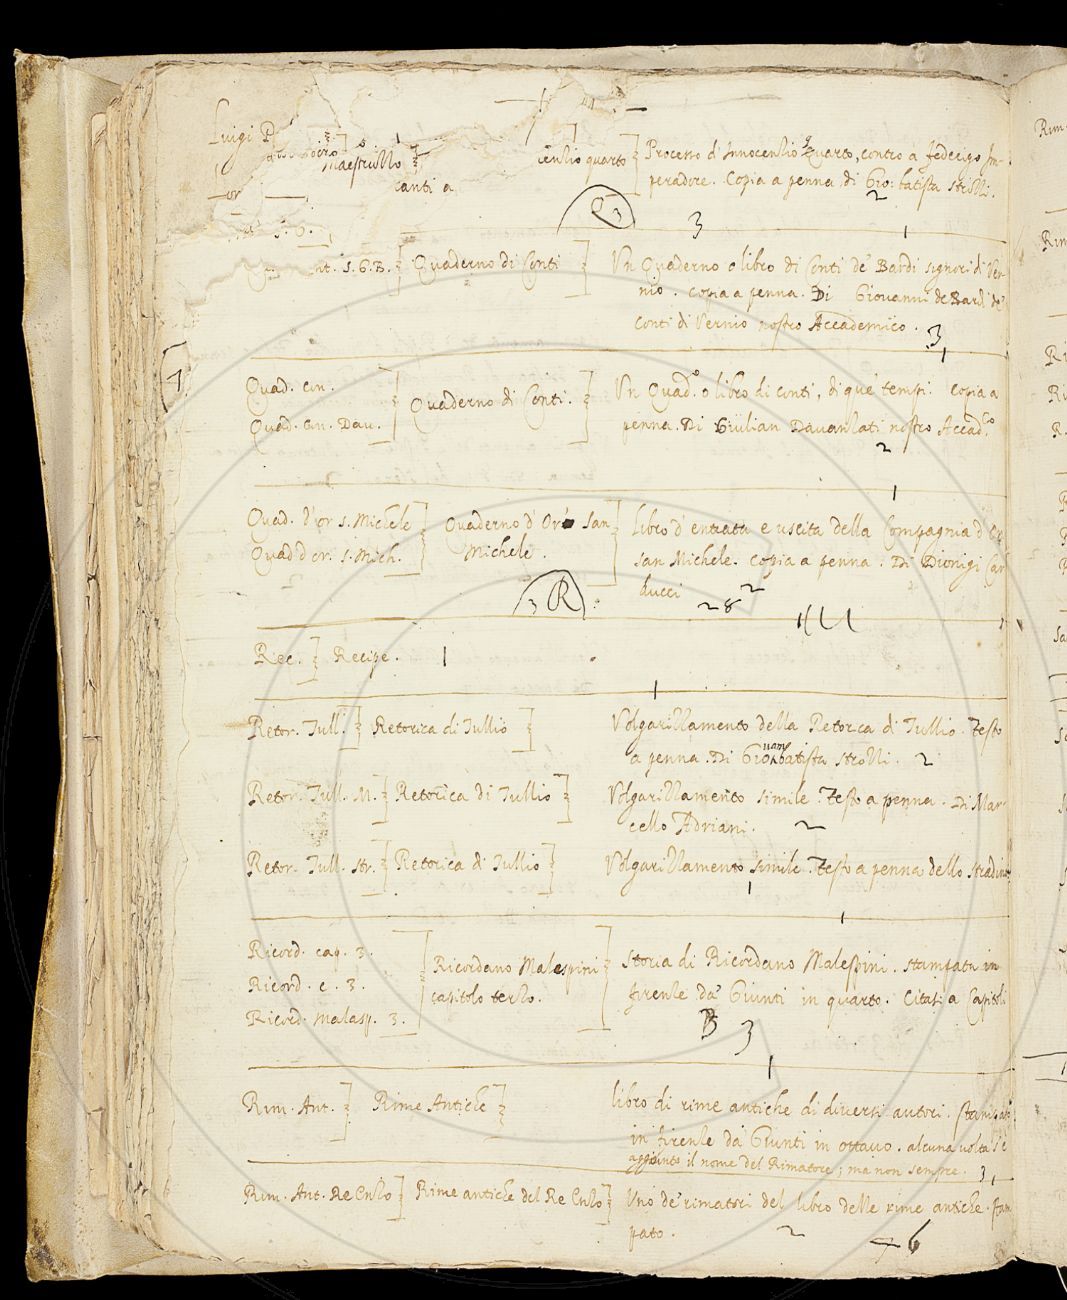 Luigi P
Maestruzzo
canti a
cenzio quarto] Processo d'Innocenzio Quarto, contro a Federigo Im-
peradore. Copia a penna, di Gio: batista strozzi.
2
Q 3 3
1
S. G. B.] Quaderno di Conti] Vn Quaderno o libro di Conti de' Bardi signori di Ver-
nio. copia a penna. Di Giovanni de Bardi de'
Conti di Vernio nostro Accademico. 3
1
Quad. Con.
Quad. Con. Dav.] Quaderno di Conti.] Vn Quad.o o libro di conti, di que' tempi. Copia a
penna. Di Giulian Davanzati nostro Accad.co
2
1
Quad. d'or s. Michele
Quad d or. s. Mich.] Quaderno d' Or San
Michele.] libro d' entrata e uscita della Compagnia d
san Michele. Copia a penna. Di Dionigi Car
ducci
3 R 28 2
Rec.] Recipe. 1
1
Retor. Tull.] Retorica di Tullio] Volgarizzamento della Retorca di Tullio. Testo
a penna. Di Giovanbatista strozzi. 2
Retor. Tull. M.] Retorica di Tullio] Volgarizzamento simile. Testo a penna. Di Mar-
cello Adriani. 2
Retor. Tull. Str.] Retorica di Tullio] Volgarizzamento simile. Testo a penna dello stradino
1
1
Ricord. cap. 3.
Ricord. c. 3.
Ricord. Malasp. 3.] Ricordano Malespini
capitolo terzo.] Storia di Ricordano Malespini. stampata in
firenze da' Giunti in quarto. Citasi a Capitoli
B 3
1
Rim. Ant.] Rime Antiche] libro di rime antiche di diversi autori. stampato
in firenze da Giunti in ottavo. alcuna volta s'è
aggiunto il nome del Rimatore; ma non sempre. 3
1
Rim. Ant. Re Enzo] Rime antiche del Re Enzo] Uno de' rimatori del libro delle rime antiche. stam
pato. 2
6